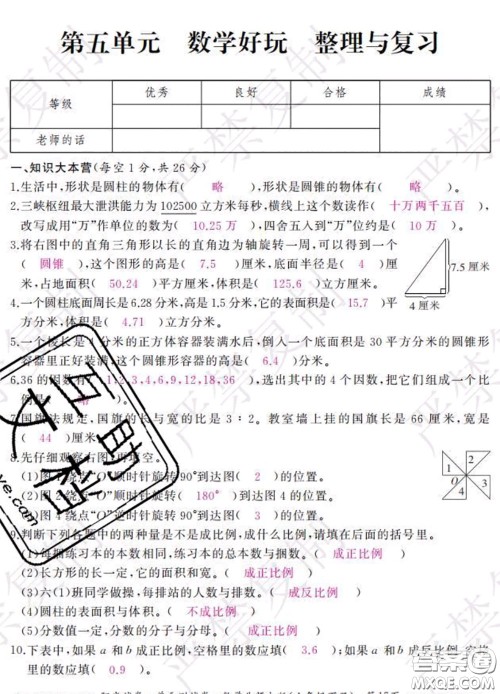 第五单元 数学好玩 整理与复习
等级 优秀 良好 合格 成绩
老师的话
一、知识大本营(每空1分,共26分)
1.生活中,形状是圆柱的物体有( 略 ),形状是圆锥的物体有( 略 )。
2.三峡枢纽最大泄洪能力为102500立方米每秒,横线上这个数读作( 十万两千五百 ),
改写成用“万”作单位的数为( 10.25万 ),四舍五入到“万”位约是( 10万 )。
3.将右图中的直角三角形以长的直角边为轴旋转一周,可以得到一个
( 圆锥 ),这个图形的高是( 7.5 )厘米,底面半径是( 4 )厘
米,占地面积( 50.24 )平方厘米,体积是( 125.6 )立方厘米。
7.5厘米
4厘米
4.一个圆柱底面周长是6.28分米,高是1.5分米,它的表面积是( 15.7 )平
方分米,体积是( 4.71 )立方分米。
5.一个棱长是4分米的正方体容器装满水后,倒入一个底面积是30平方分米的圆锥形
容器里正好装满,这个圆锥形容器的高是( 6.4 )分米。
6.36的因数有( 1,2,3,4,6,9,12,18,36 ),选出其中的4个因数,把它们组成一个比
例是( 略 )
7.国旗法规定,国旗的长与宽的比是3:2。教室墙上挂的国旗长是66厘米,宽是
( 44 )厘米。
8.先仔细观察右图,再填空。
(1)图1绕点“O”顺时针旋转90°到达图( 2 )的位置。
(2)图2绕点“O”顺时针旋转( 180° )到达图4的位置。
(3)图4绕点“O”逆时针旋转90°到达图( 3 )的位置。
1 2 O 4 3
9.判断下列各题中的两种量是不是成比例,成什么比例,请填在后面的括号里。
(1)每捆练习本的本数相同,练习本的总本数与捆数。( 成正比例 )
(2)长方形的长一定,它的面积和宽。( 成正比例 )
(3)六(1)班同学做操,每排站的人数与排数。( 成反比例 )
(4)圆柱的表面积与体积。( 不成比例 )
(5)分数值一定,分数的分子与分母。( 成正比例 )
10.下表中,如果a和b成正比例,空格里的数应填( 3.6 );如果a和b成反比例,空格
里的数应填( 0.9 )。
严禁复制
互助
文科